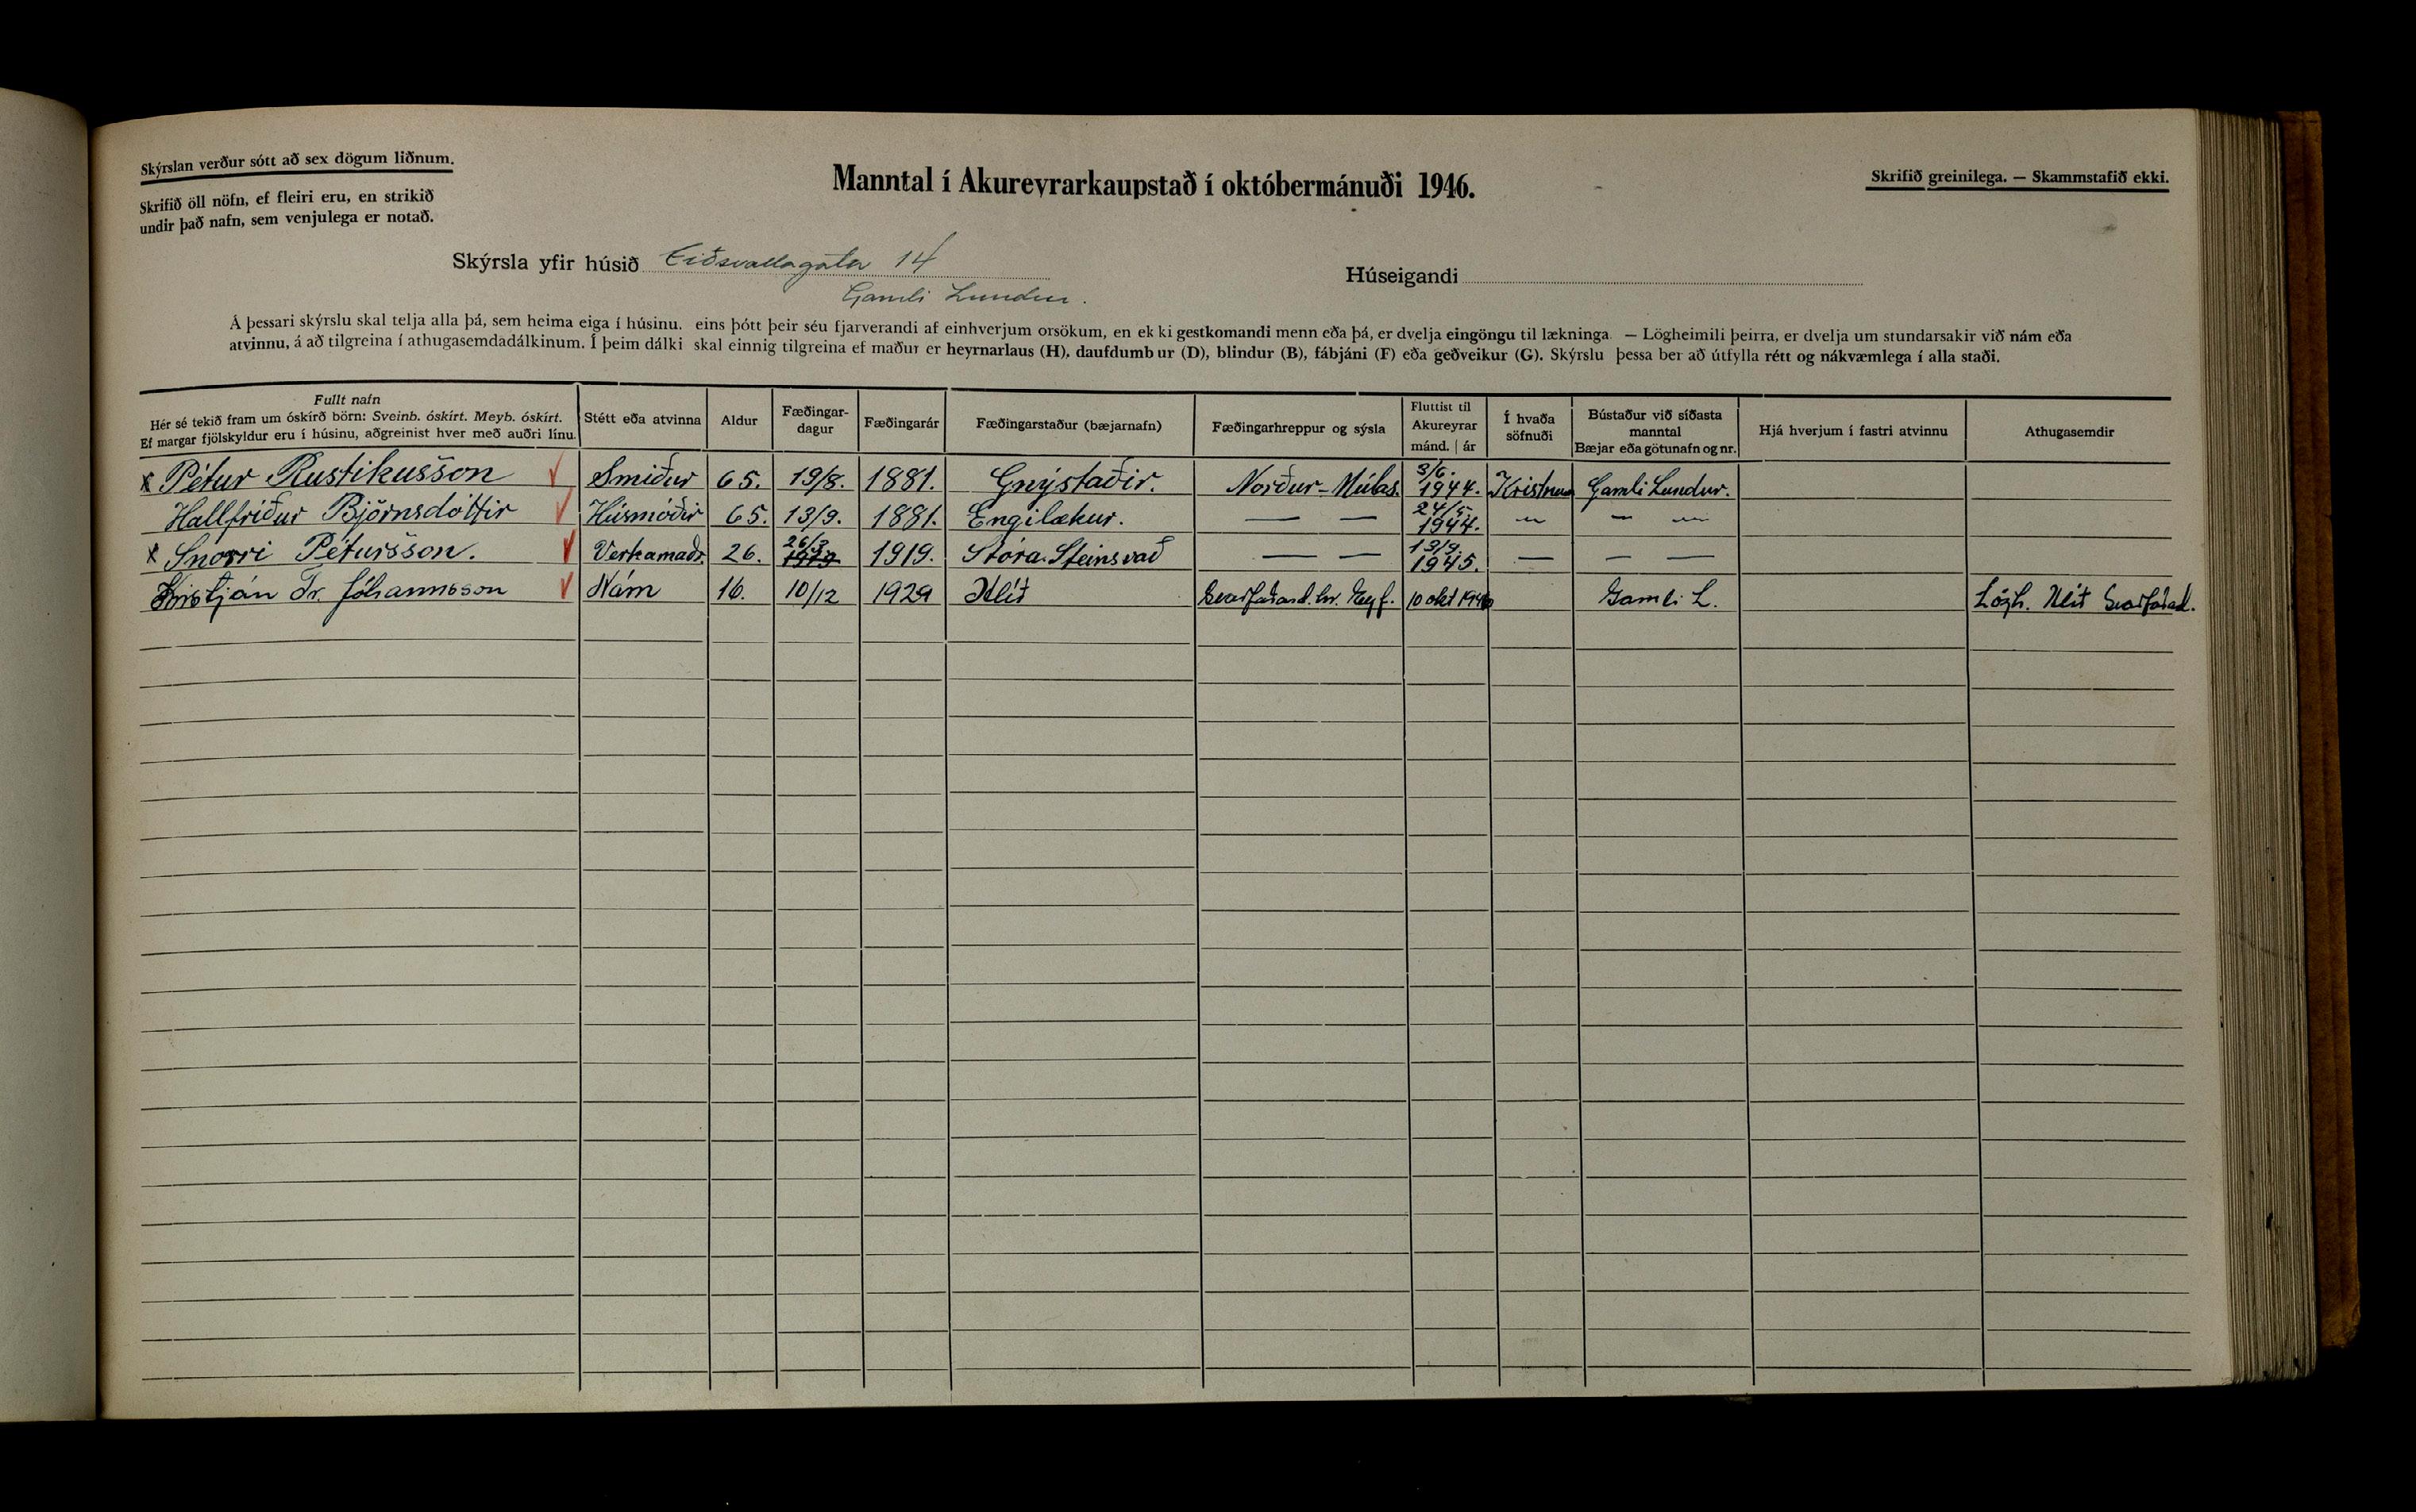 Skýrslan verður sótt að sex dögum liðnum.
Skrifið öll nöfn, ef fleiri eru, en strikið
undir það nafn, sem venjulega er notað.
Manntal í Akureyrarkaupstað í októbermánuði 1946.
Skrifið greinilega. — Skammstafið ekki.
Skýrsla yfir húsið Eiðsvallagata 14
Gamli Lundur.
Húseigandi
Á þessari skýrslu skal telja alla þá, sem heima eiga í húsinu. eins þótt þeir séu fjarverandi af einhverjum orsökum, en ekki gestkomandi menn eða þá, er dvelja eingöngu til lækninga. — Lögheimili þeirra, er dvelja um stundarsakir við nám eða
atvinnu, á að tilgreina í athugasemdadálkinum. Í þeim dálki skal einnig tilgreina ef maður er heyrnarlaus (H), daufdumbur (D), blindur (B), fábjáni (F) eða geðveikur (G). Skýrslu þessa ber að útfylla rétt og nákvæmlega í alla staði.
Fullt nafn
Hér sé tekið fram um óskírð börn: Sveinb. óskírt. Meyb. óskírt.
Ef margar fjölskyldur eru í húsinu, aðgreinist hver með auðri línu.
Stétt eða atvinna
Aldur
Fæðingar-
dagur
Fæðingarár
Fæðingarstaður (bæjarnafn)
Fæðingarhreppur og sýsla
Fluttist til
Akureyrar
mánd. | ár
Í hvaða
söfnuði
Bústaður við síðasta
manntal
Bæjar eða götunafn og nr.
Hjá hverjum í fastri atvinnu
Athugasemdir
x Pétur Rustikusson √ Smiður 65. 19/8. 1881. Gnýstaðir. Norður-Múlas. 3/6. 1944. Kristnu Gamli Lundur.
Hallfríður Björnsdóttir √ Húsmóðir 65. 13/9. 1881. Engilækur. — — 24/5. 1944. — — —
x Snorri Pétursson. √ Verkamaðr. 26. 26/3 1919. Stóra-Steinsvað — — 13/9. 1945. — — —
Kristján Tr. Jóhannsson √ Nám 16. 10/12 1929 Hlíð Svarfaðard.hr. Eyf. 10 okt 1946 Gamli L. Lögh. Hlíð Svarfaðard.